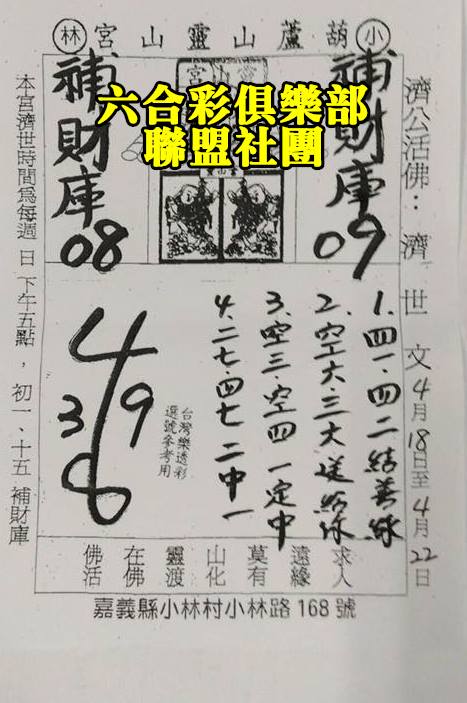 小葫蘆山靈山宮林
六合彩俱樂部
聯盟社團
補財庫
09
補財庫
08
濟公活佛：濟世文4月18日至4月22日
1.四一.四二結善緣
2.空六.三六送給你
3.空三.空四一定中
4.二七.四七二中一
台灣樂透彩
選號參考用
4
3 9
8
求人
遠緣
莫有
山化
靈渡
在佛
佛活
本宮濟世時間為每週日下午五點，初一、十五補財庫
嘉義縣小林村小林路168號